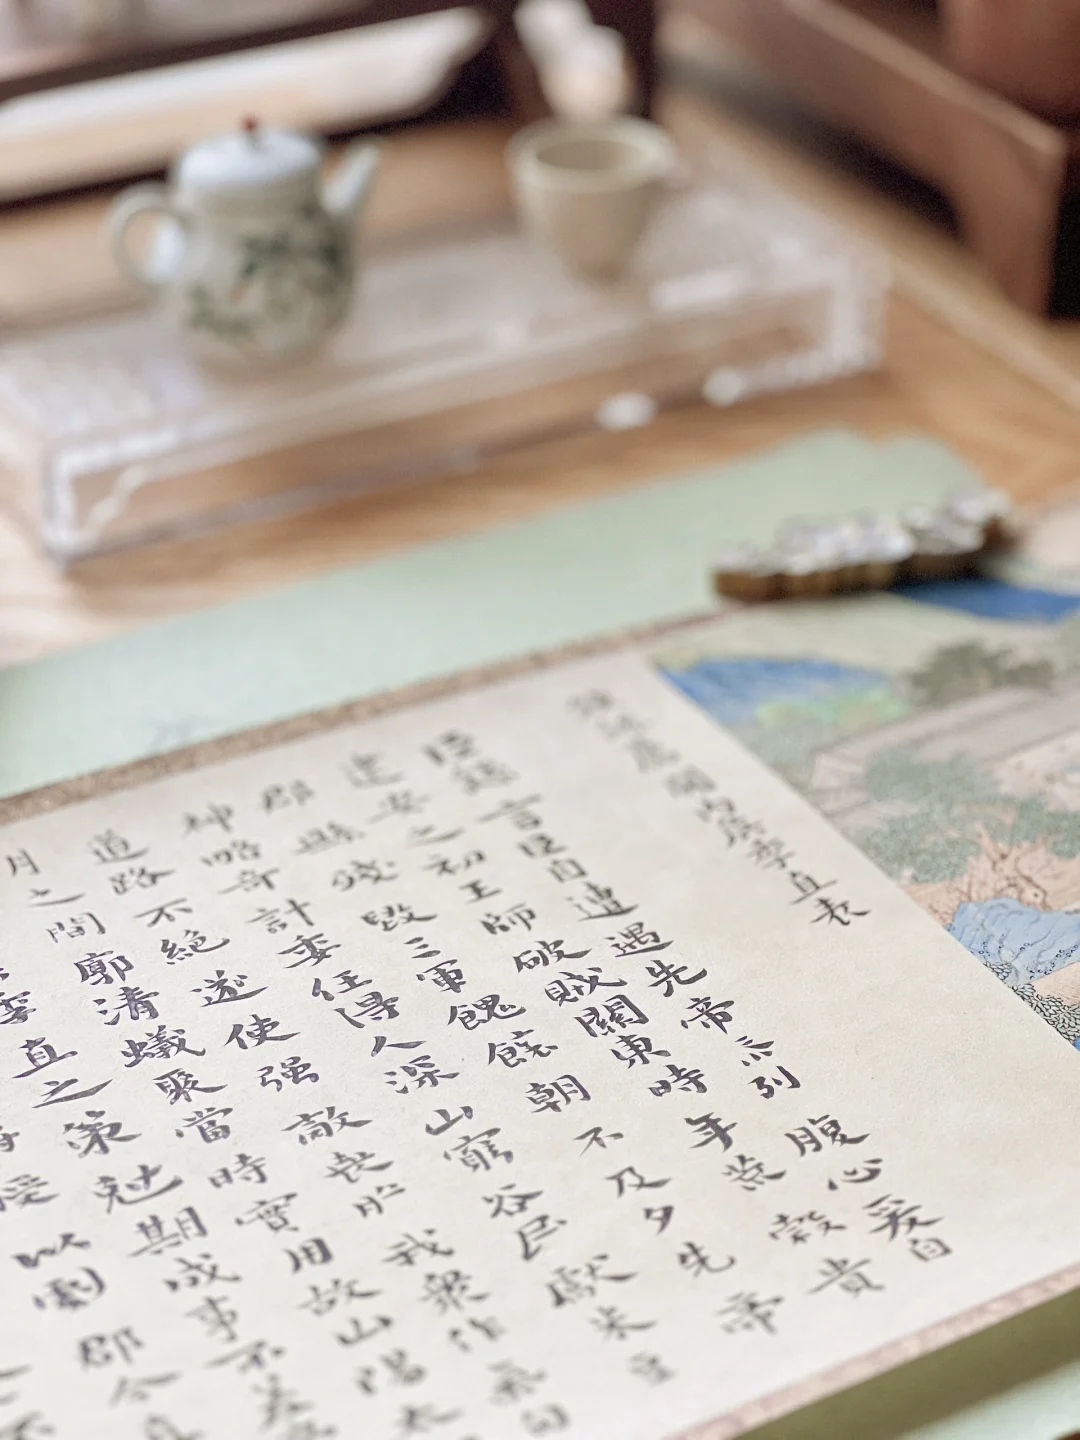 關內侯季直表
臣繇言臣自遭遇先帝忝列腹心爰自
建安之初王師破賊關東時年荒穀貴
郡縣殘毀三軍餽饟朝不及夕先帝
神略奇計委任得人深山窮谷民獻米豆
道路不絕遂使强敵喪膽我衆作氣旬
月之間廓清蟻聚當時實用故山陽太
季直之策剋期成事不差
授以劇郡今直